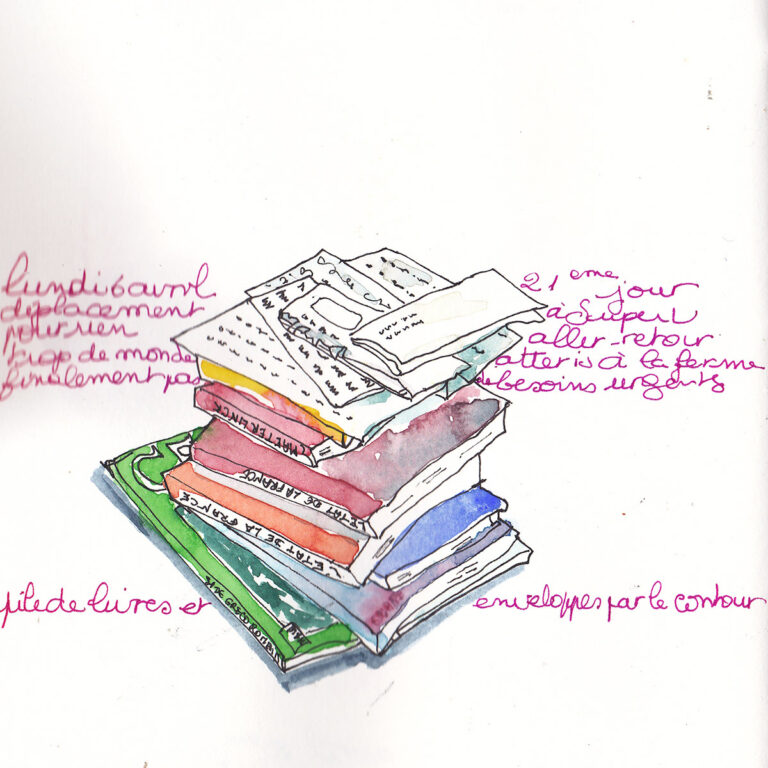 lundi 6 avril
déplacement
pour rien
trop de monde
finalement pas
21 eme jour
à Super U
aller-retour
atteris à la ferme
de besoins urgents
MAETERLINCK
L'ETAT DE LA FRANCE
L'ETAT DE LA FRANCE
pile de livres et
enveloppes par le contour